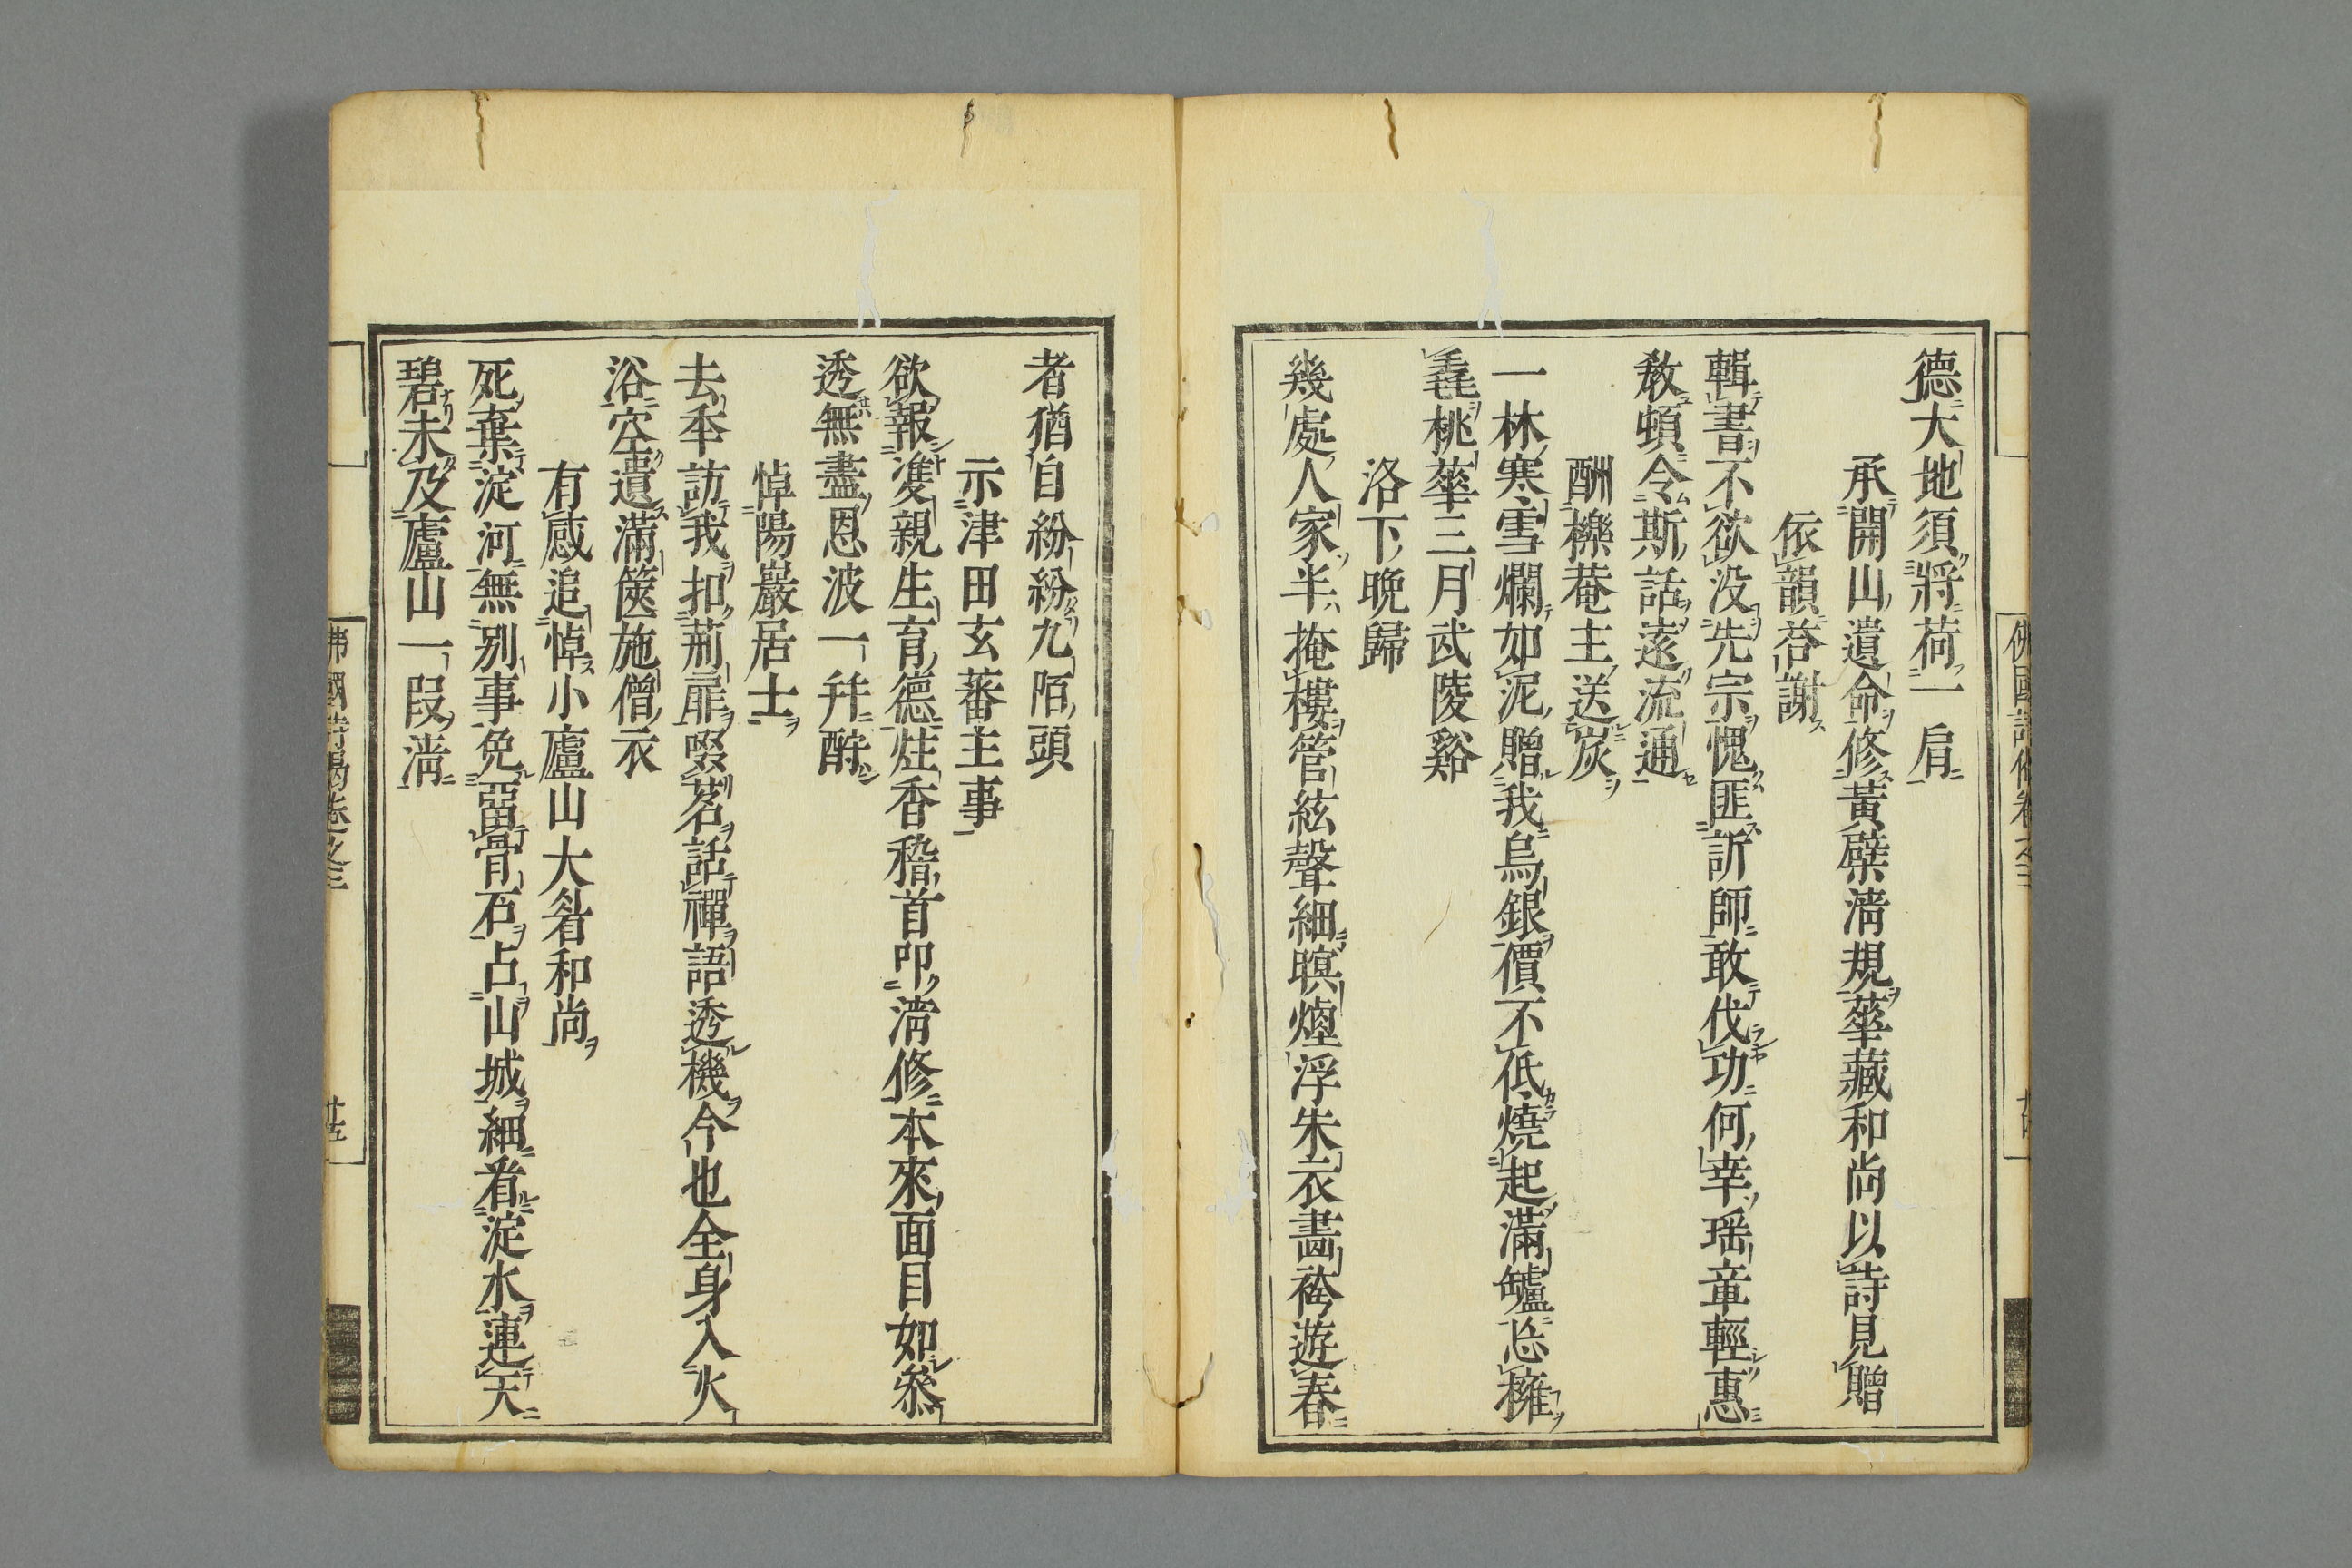 德大地須將荷一肩
承開山遺命修黃檗淸規華藏和尚以詩見贈
依韻荅謝
輯書不欲没先宗愧匪訢師敢伐功何幸瑶章輕惠
敎頓令斯話遠流通
酬櫟菴主送炭
一林寒雪爛如泥贈我烏銀價不低燒起滿罏忘擁
毳桃華三月武陵谿
洛下晚歸
幾處人家半掩樓管絃聲細暝煙浮朱衣畵袴遊春
者猶自紛紛九陌頭
示津田玄蕃主事
欲報雙親生育德炷香稽首叩淸修本來面目如參
透無盡恩波一幷酧
悼陽巖居士
去年訪我扣荊扉啜茗話禪語透機今也全身入火
浴空遺滿篋施僧衣
有感追悼小廬山大眉和尚
死棄淀河無别事免畱骨石占山城細看淀水連天
碧未及廬山一段淸
佛國詩偈卷之三
廿五